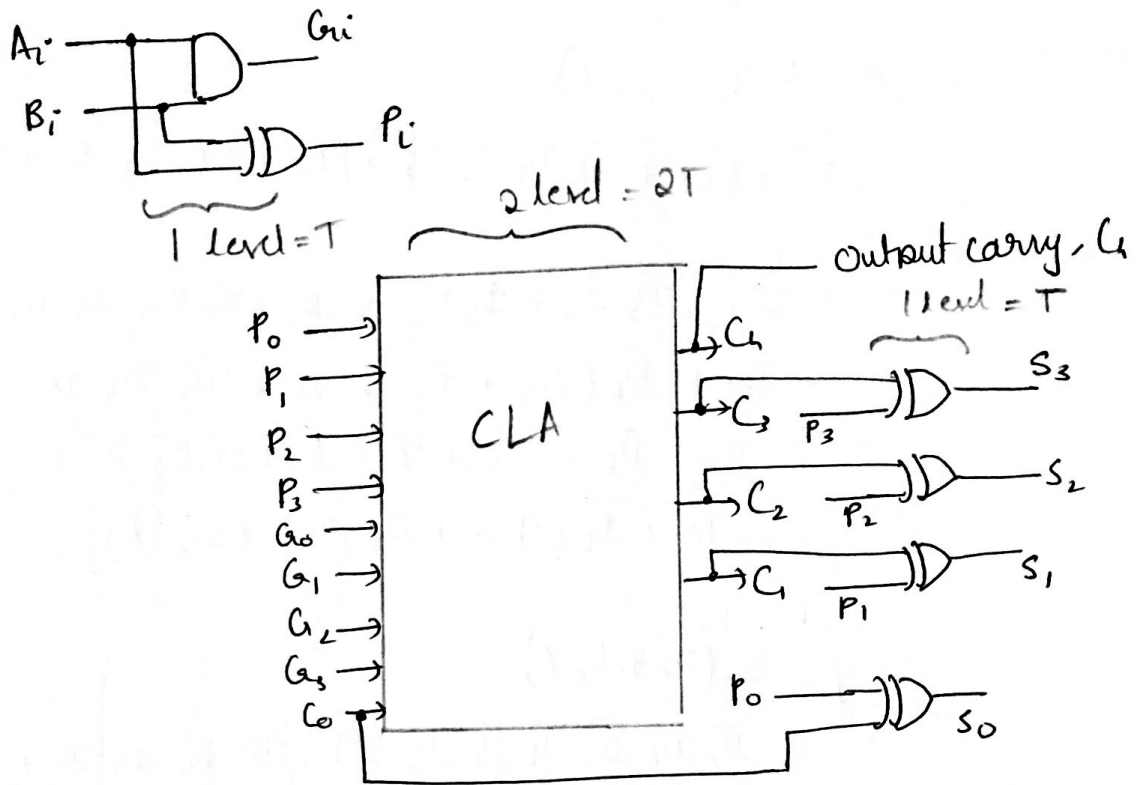 Ai
Gi
Bi
Pi
1 level = T
2 level = 2T
Output carry, C4
1 level = T
P0
P1
P2
P3
G0
G1
G2
G3
C0
CLA
C4
C3
P3
S3
C2
P2
S2
C1
P1
S1
P0
S0